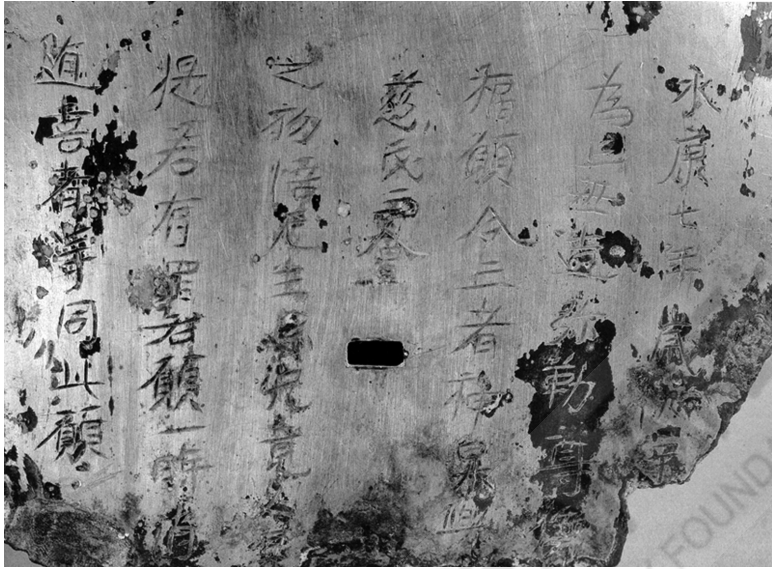 永康七年歲
為亡造弥勒尊像
福願令亡者神昇兜
慈氏三會
之初悟无生忍究竟菩
提若有罪右願一時消
道喜等同此願
FOUNDA